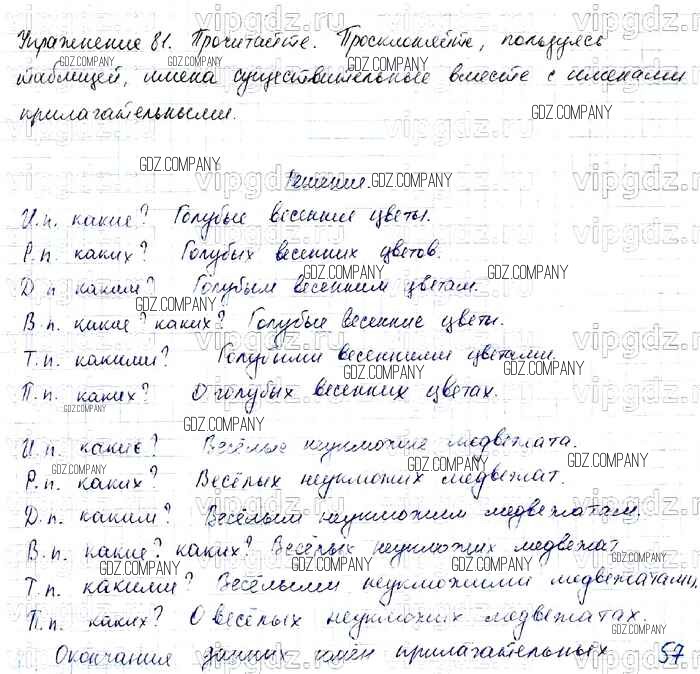 Упражнение 81. Прочитайте. Просклоняйте, пользуясь
таблицей, имена существительные вместе с именами
прилагательными.
Решение.
И.п. какие? Голубые весенние цветы.
Р.п. каких? Голубых весенних цветов.
Д.п. каким? Голубым весенним цветам.
В.п. какие? каких? Голубые весенние цветы.
Т.п. какими? Голубыми весенними цветами.
П.п. каких? О голубых весенних цветах.
И.п. какие? Весёлые неуклюжие медвежата.
Р.п. каких? Весёлых неуклюжих медвежат.
Д.п. каким? Весёлым неуклюжим медвежатам.
В.п. какие? каких? Весёлых неуклюжих медвежат
Т.п. какими? Весёлыми неуклюжими медвежатами.
П.п. каких? О весёлых неуклюжих медвежатах.
Окончания данных имён прилагательных 57